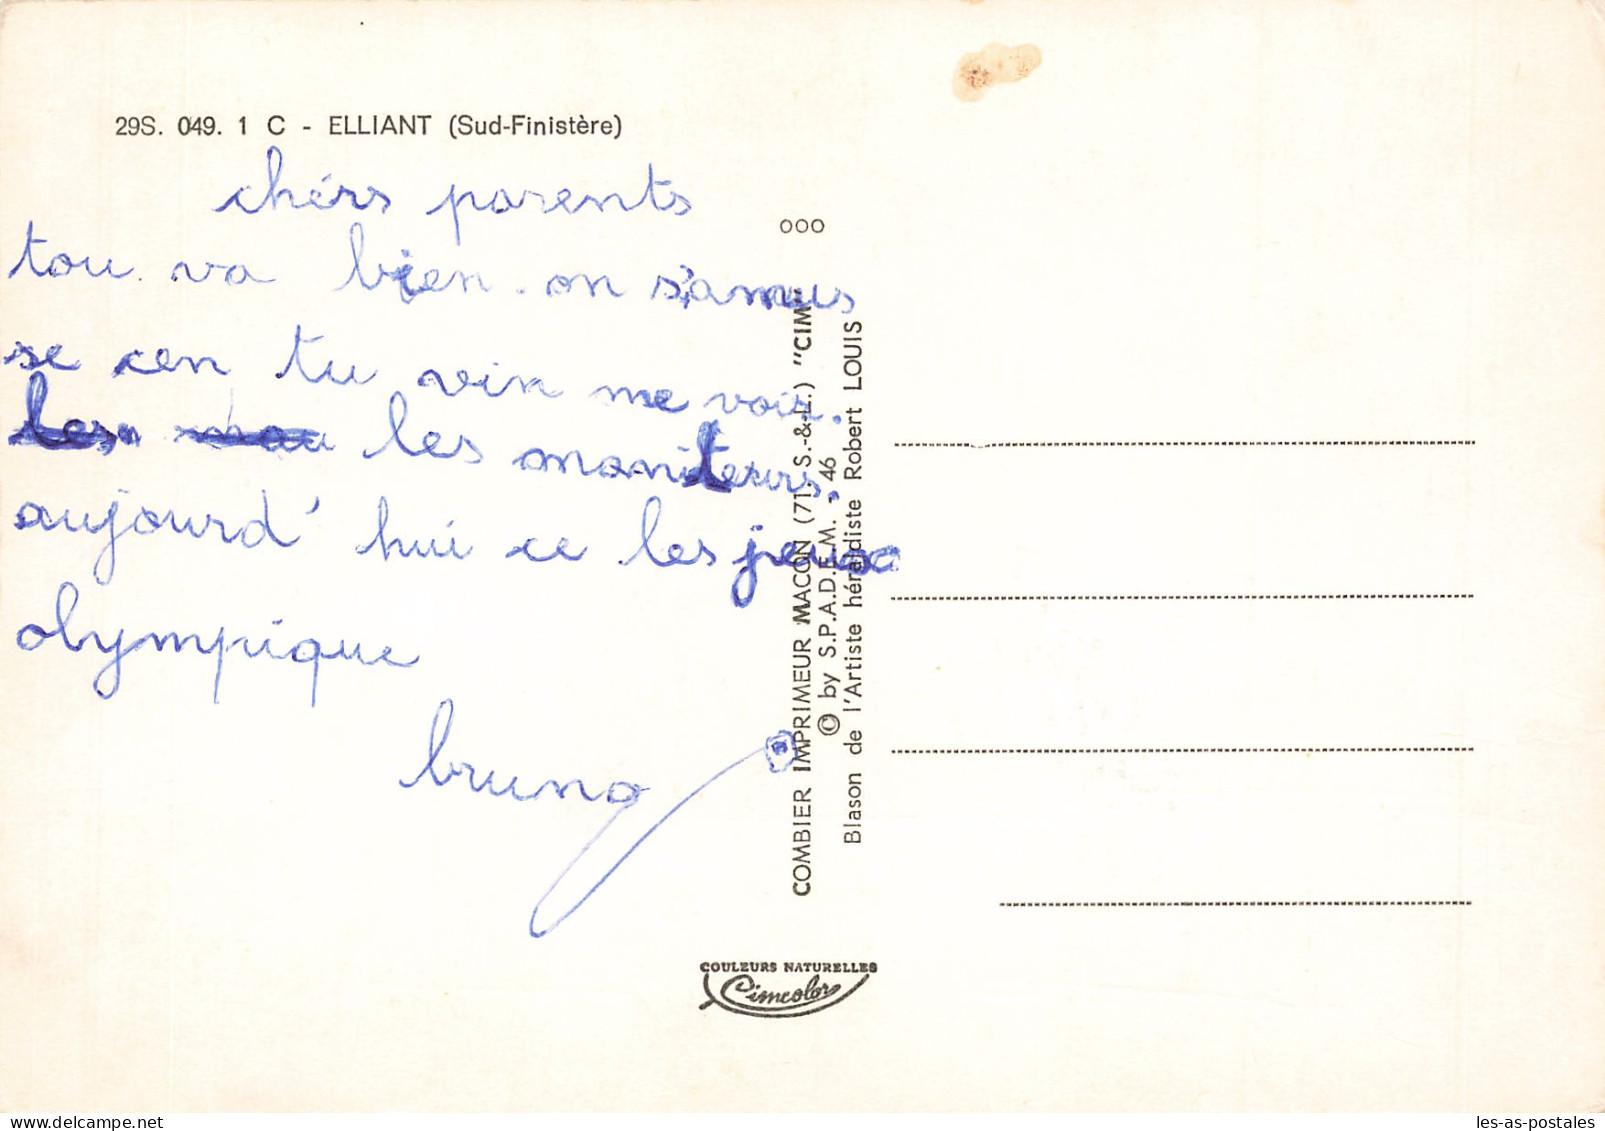 29S. 049. 1 C - ELLIANT (Sud-Finistère)
chérs parents
tou va bien. on s'amus
se cen tu vin me voir.
les moniteurs.
aujourd' hui ce les jeux
olympique
bruno
ooo
COMBIER IMPRIMEUR MACON (71. S.-&-L.) "CIM"
© by S.P.A.D.E.M. - 46
Blason de l'Artiste héraldiste Robert LOUIS
COULEURS NATURELLES
Cimcolor
les-as-postales